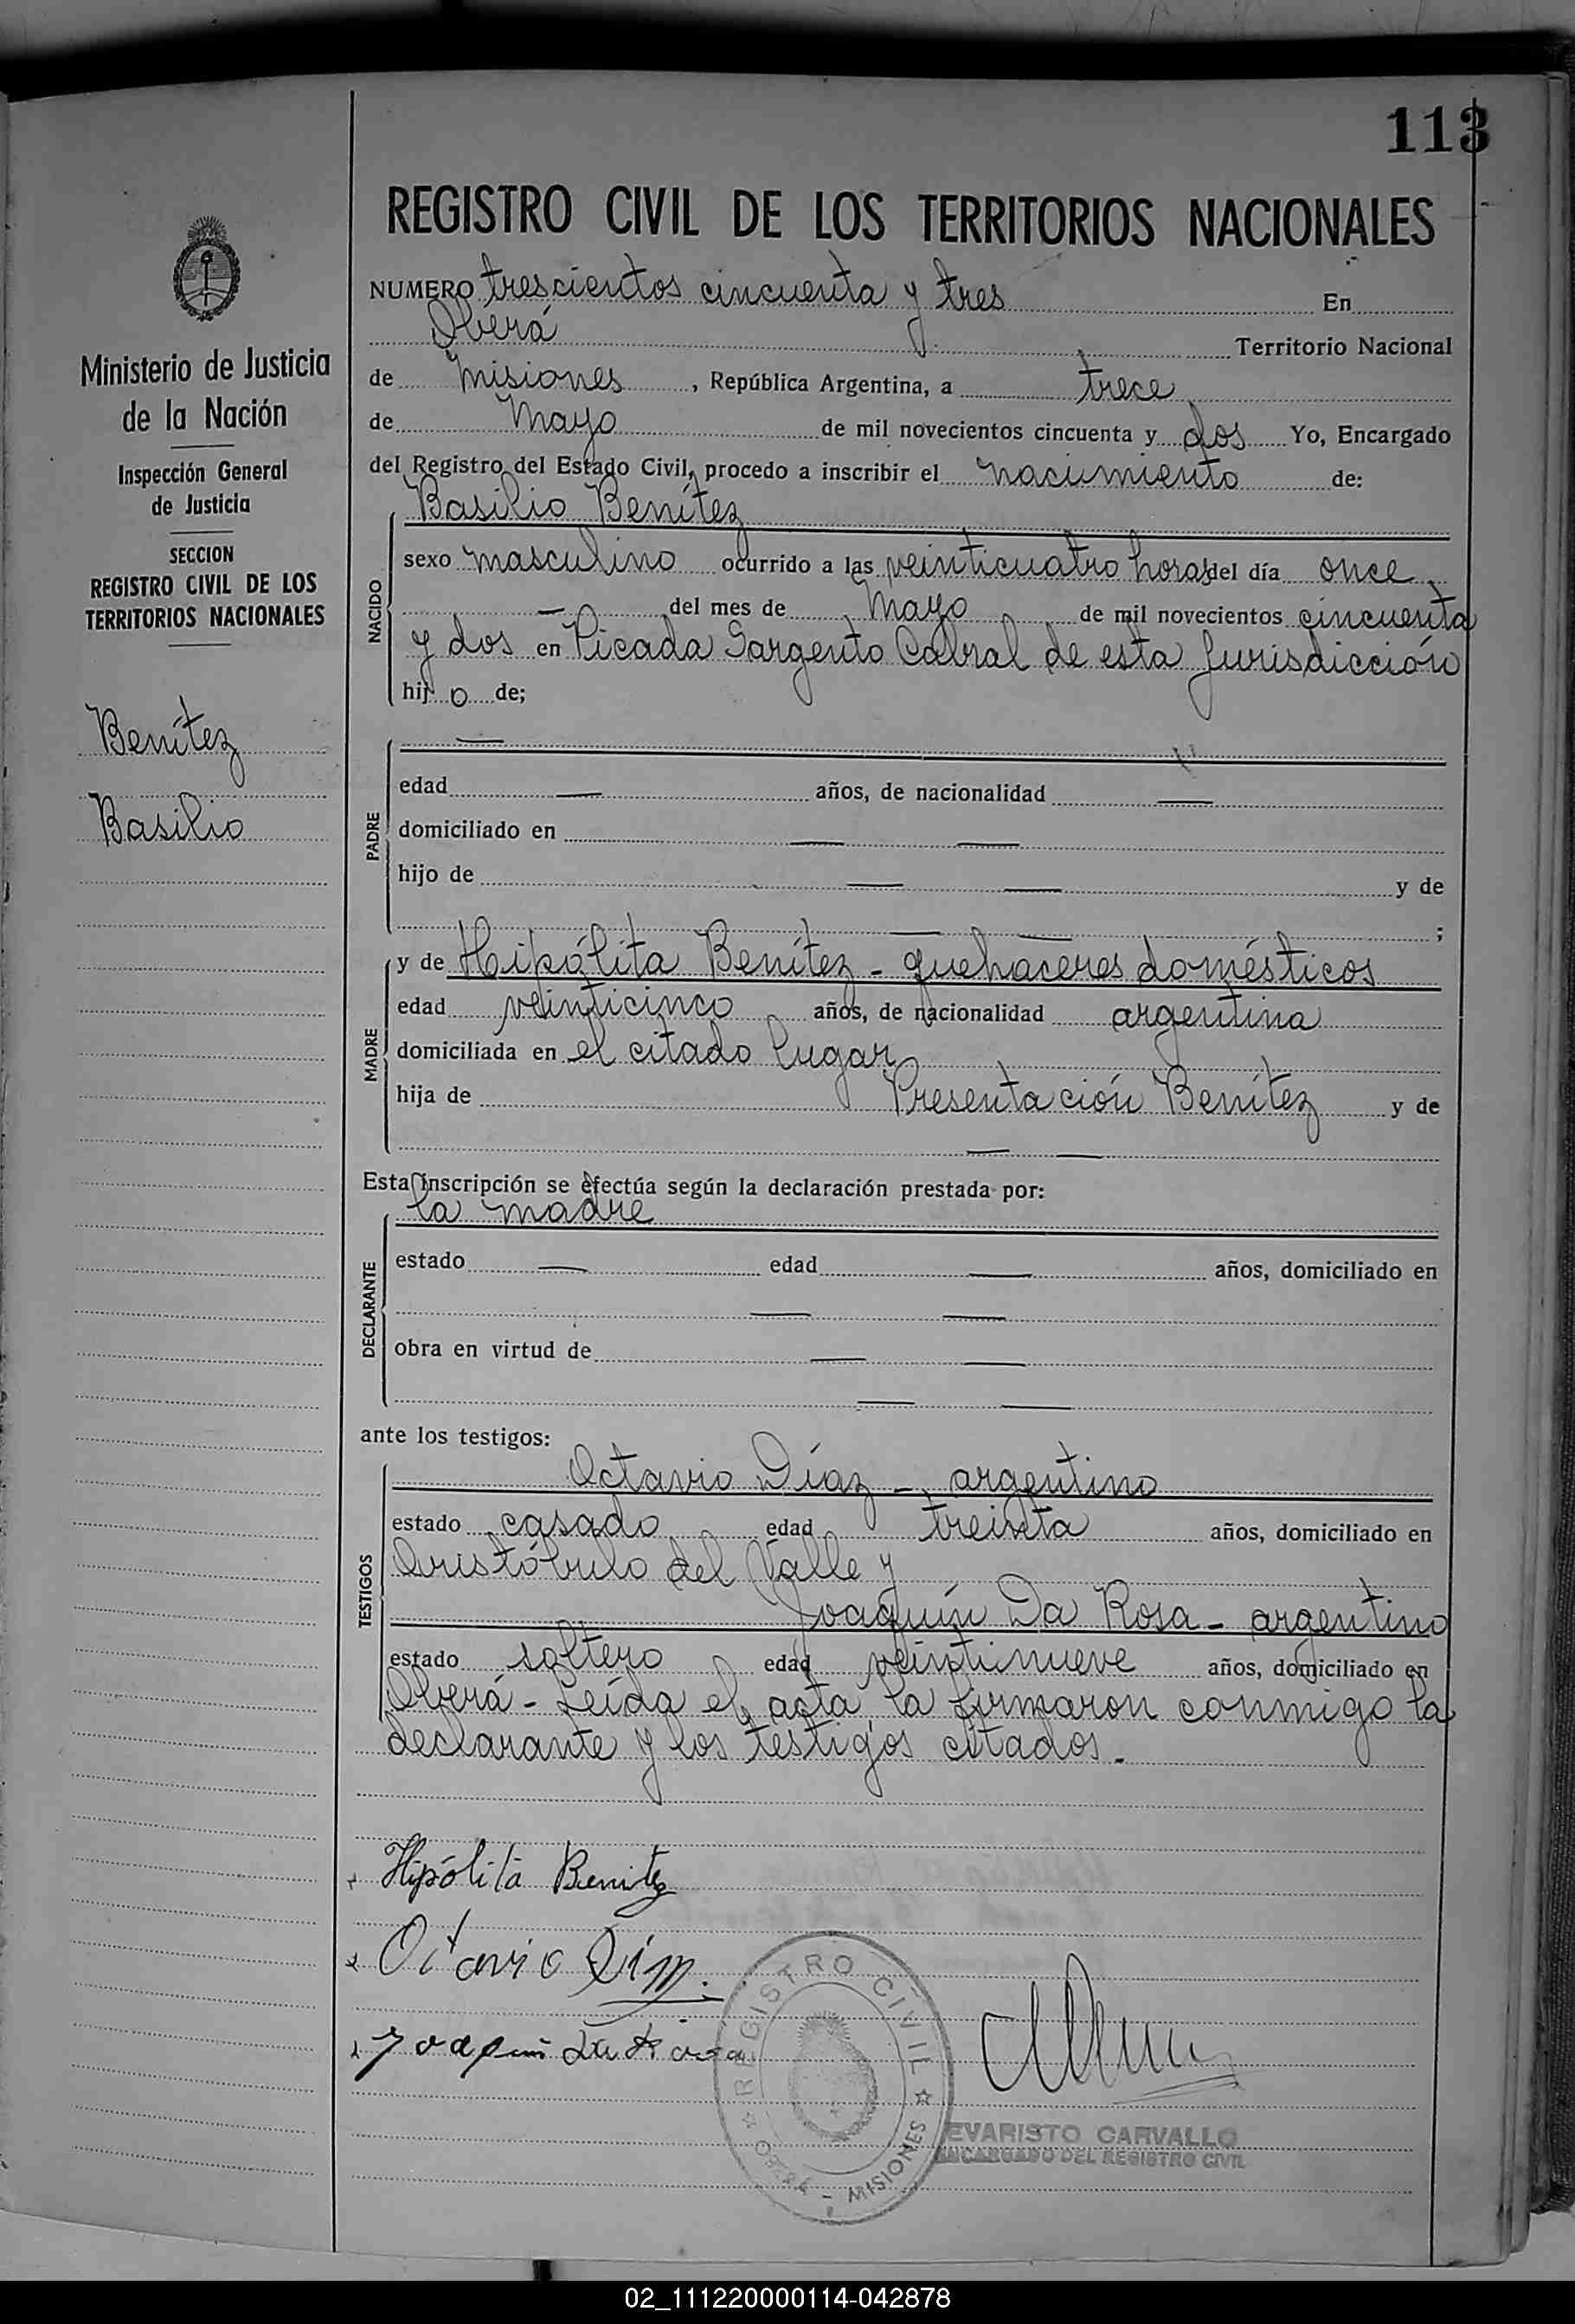 113
REGISTRO CIVIL DE LOS TERRITORIOS NACIONALES
NUMERO trescientos cincuenta y tres En
Oberá Territorio Nacional
de Misiones, República Argentina, a trece
de Mayo de mil novecientos cincuenta y dos Yo, Encargado
del Registro del Estado Civil, procedo a inscribir el nacimiento de:
Basilio Benítez
NACIDO
sexo masculino ocurrido a las veinticuatro horas del día once
— del mes de Mayo de mil novecientos cincuenta
y dos en Picada Sargento Cabral de esta Jurisdicción
hijo de;
PADRE
—
edad — años, de nacionalidad —
domiciliado en — —
hijo de — — y de
— — ;
MADRE
y de Hipólita Benítez - quehaceres domésticos
edad veinticinco años, de nacionalidad argentina
domiciliada en el citado lugar
hija de Presentación Benítez y de
— —
Esta inscripción se efectúa según la declaración prestada por:
la madre
DECLARANTE
estado — edad — años, domiciliado en
— —
obra en virtud de — —
— —
ante los testigos:
TESTIGOS
Octavio Díaz - argentino
estado casado edad treinta años, domiciliado en
Aristóbulo del Valle y
Joaquín Da Rosa - argentino
estado soltero edad veintinueve años, domiciliado en
Oberá - Leída el acta la firmaron conmigo la
declarante y los testigos citados.
Hipólita Benitez
Octavio Díaz
Joaquin Da Rosa
REGISTRO CIVIL
OBERA - MISIONES
EVARISTO CARVALLO
ENCARGADO DEL REGISTRO CIVIL
Ministerio de Justicia
de la Nación
Inspección General
de Justicia
SECCION
REGISTRO CIVIL DE LOS
TERRITORIOS NACIONALES
Benítez
Basilio
02_111220000114-042878